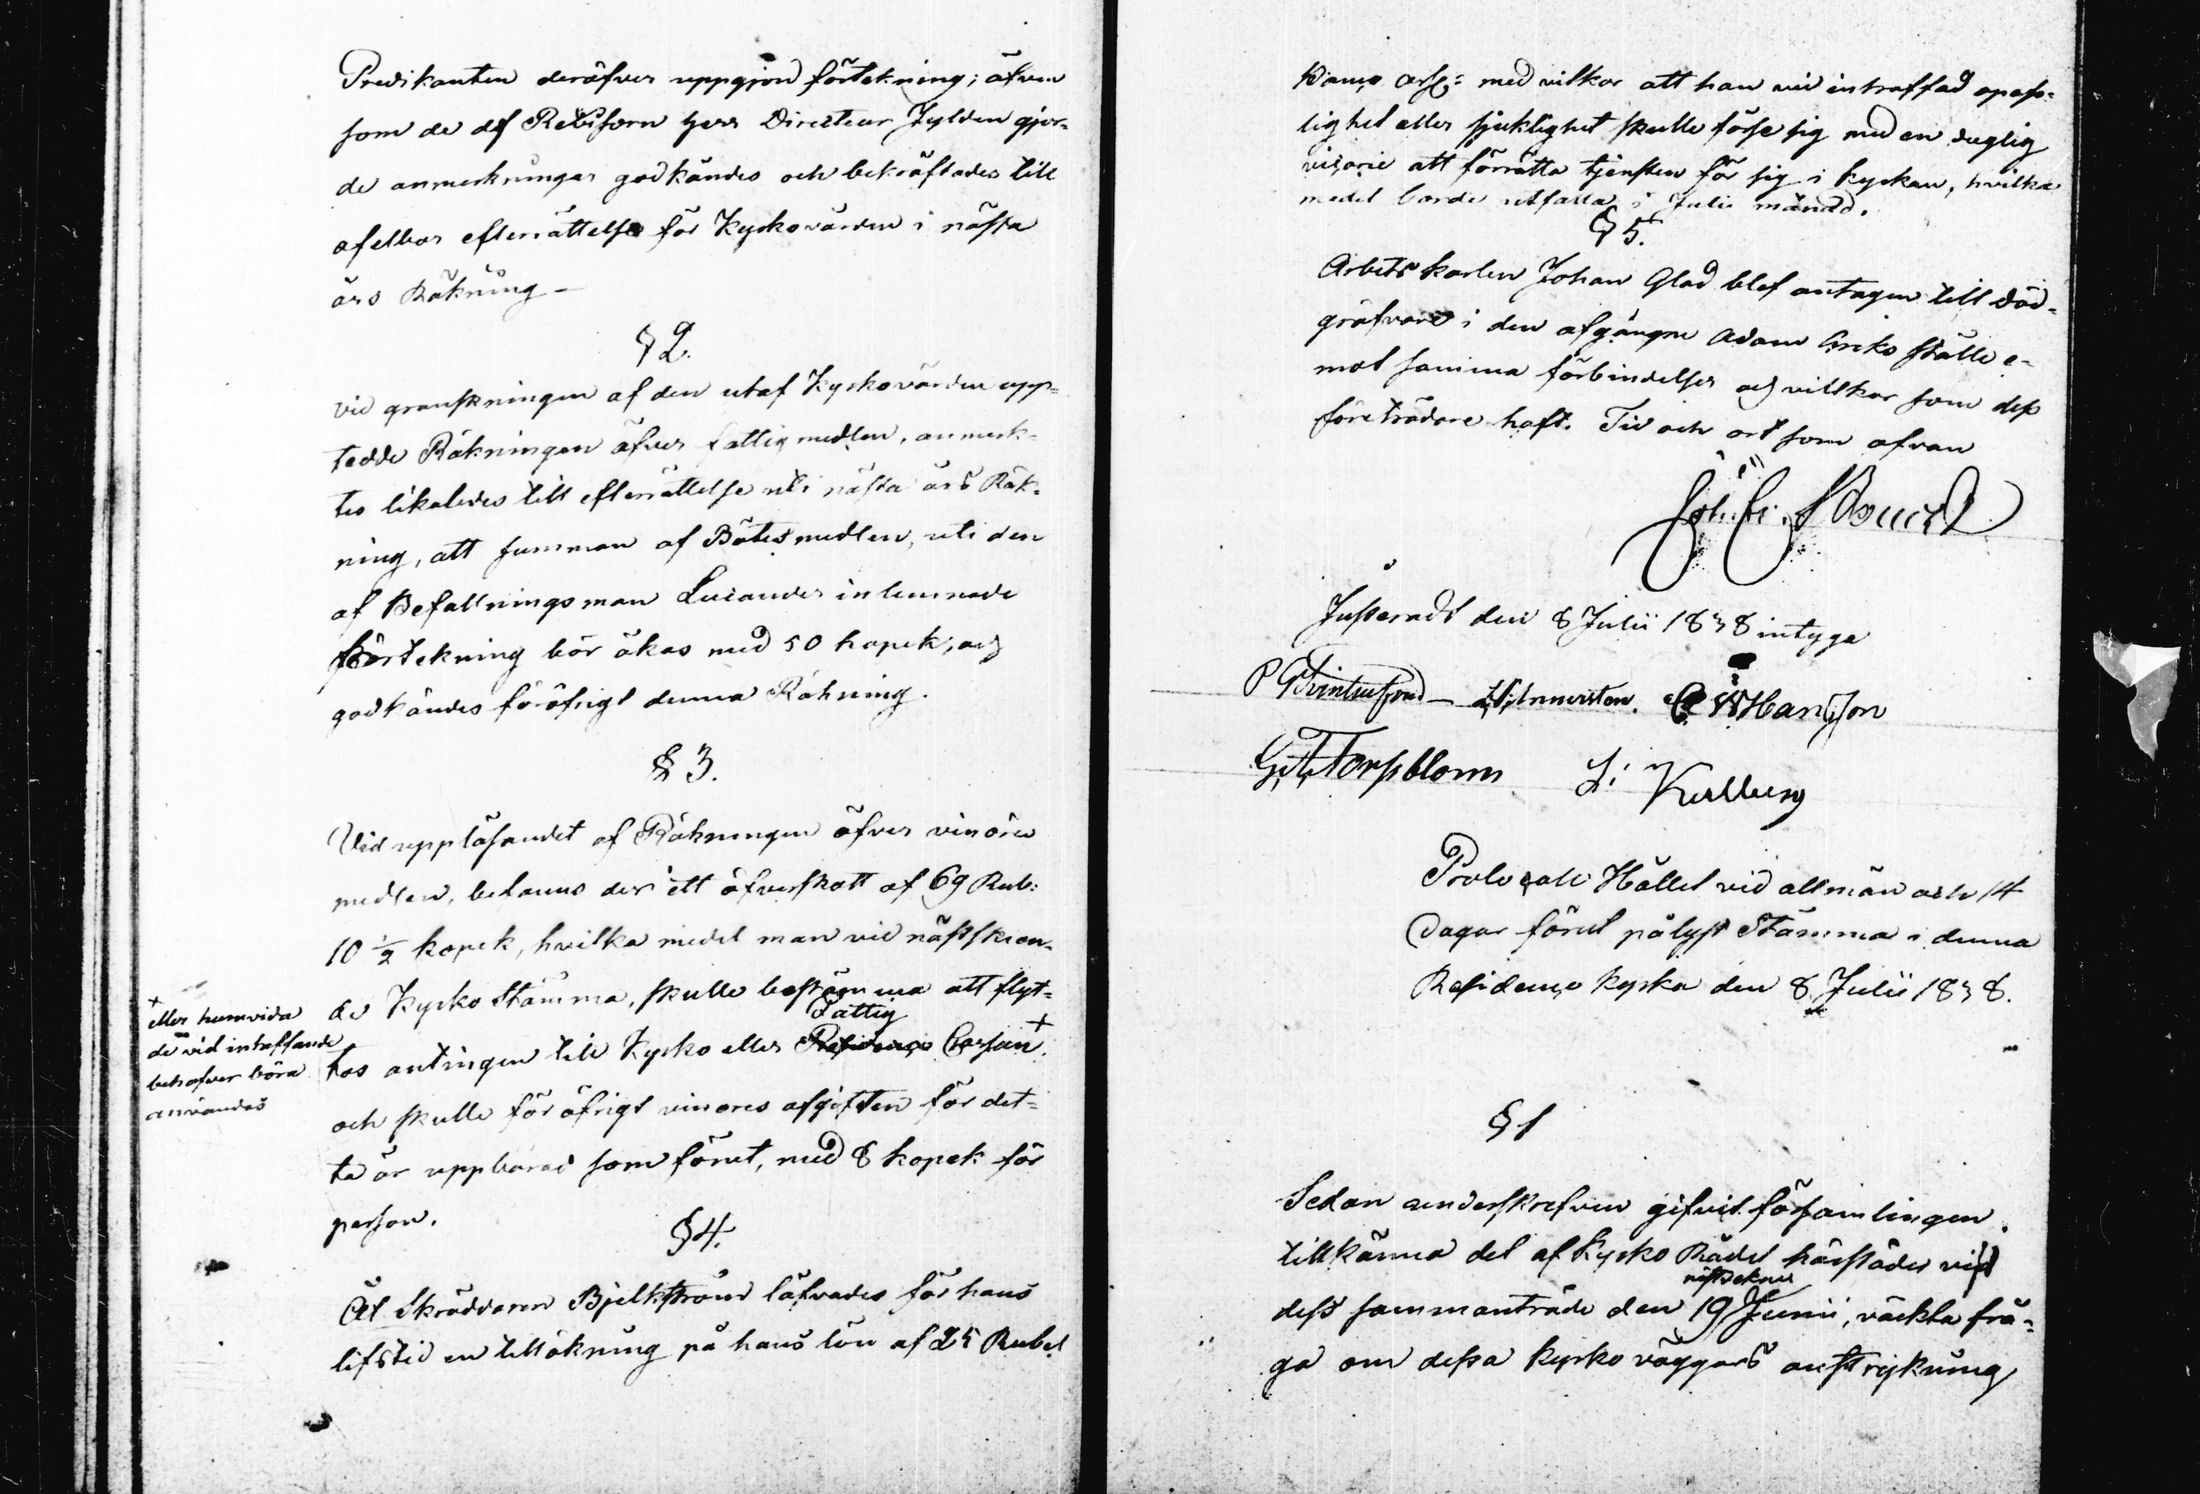 Predikanten deröfver uppgjord förtekning; äfven
som de af Revisorn Herr Directeur Gylden gjor-
de anmerkningar godkändes och bekräftades till
ofelbar efterrättelse för Kyrkovärden i nästa
års Räkning —
§ 2.
vid granskningen af den utaf Kyrkovärden upp-
tedde Räkningen öfver fattigmedlen, anmerk-
tes likaledes till efterrättelse uti nästa års Räk-
ning, att summan af Bötesmedlen, uti den
af Befallningsman Lucander inlemnade
förtekning bör ökas med 50 kopek, och
godkändes föröfrigt denna Räkning.
§ 3.
Vid uppläsandet af Räkningen öfver vinöres
medlen, befanns der ett öfverskott af 69 Rub:
10 ½ kopek, hvilka medel man vid nästskeen-
de Kyrko Stämma, skulle bestämma att flyt-
Fattig
tas antingen till Kyrko eller Residence Cassan +
+ eller huruvida
de vid inträffande
behofver böra
användas
och skulle för öfrigt vinöres afgiften för det-
ta år uppbäras som förut, med 8 kopek för
person.
§ 4.
Åt Skräddaren Bjelkström löfvades för hans
lifstid en tillökning på hans lön af 25 Rubel
Banco Ass: med vilkor att han vid inträffad opass-
lighet eller sjuklighet skulle förse sig med en duglig
vicarie att förrätta tjensten för sig i kyrkan, hvilka
medel borde utfalla i Julii månad.
§ 5.
Arbets karlen Johan Glad blef antagen till död-
gräfvare i den afgångne Adam ställe e-
mot samma förbindelser och villkor som dess
företrädare haft. Tid och ort som ofvan
Justeradt den 8 Julii 1838 intyga
G. A. Forssblom
Protocoll Hållet vid allmän och 14
Dagar förut pålyst Stämma i denna
Residence kyrka den 8 Julii 1838.
§ 1
Sedan underskrefven gifvit församlingen
tillkänna det af Kyrko Rådet härstädes vid
dess sammanträde den 19 Junii, väckta frå-
ga om dessa kyrko väggars anstrykning